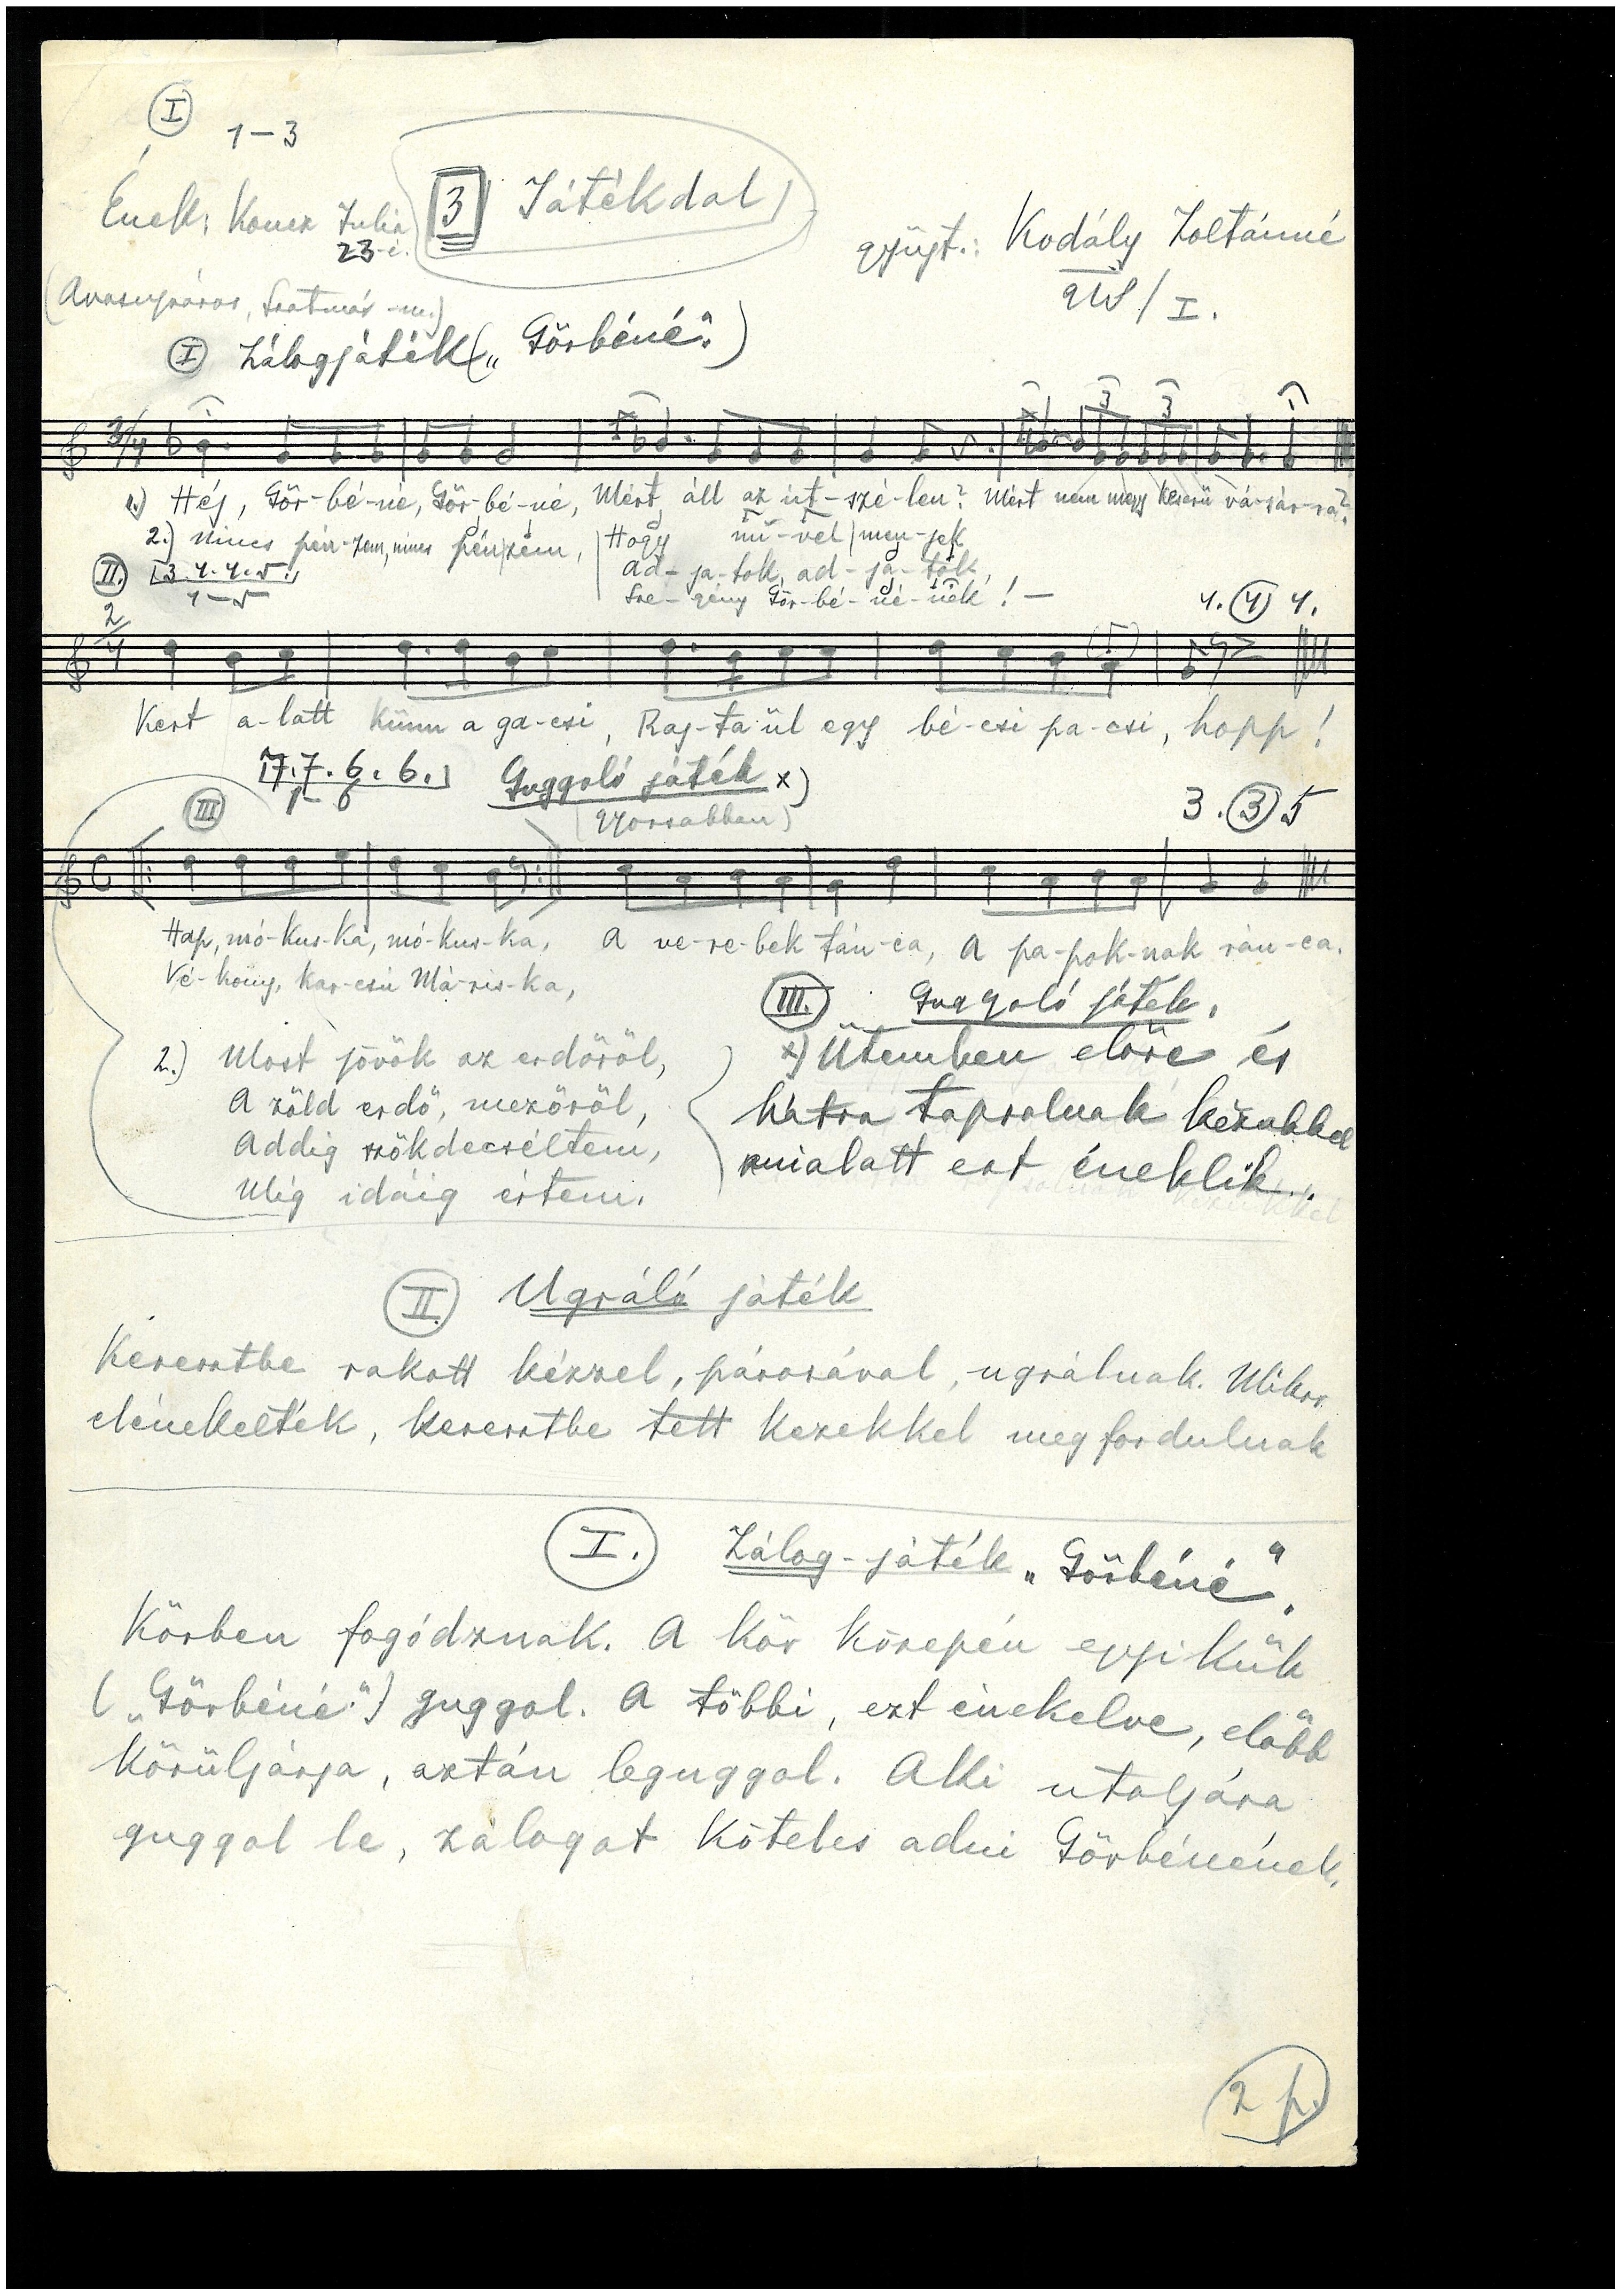 I
1–3
Ének: Koncz Julia
23 é.
3 Játékdal
gyüjt.: Kodály Zoltánné
I.
(Avasujváros, Szatmár-m.)
I Zálogjáték („Görbéné".)
3/4
3 3
1.) Héj, Gör-bé-né, Gör-bé-né, Mért áll az út-szé-len? Mért nem megy keserü vá-sár-ra?
2.) Nincs pén-zem, nincs pén-zem, Hogy mi-vel men-jek
Ad-ja-tok, ad-ja-tok,
Sze-gény Gör-bé-né-nek! –
II. 3.4.4.5.
1–5
4. (4) 4.
2/4
Kert a-latt künn a ga-csi, Raj-ta ül egy bé-csi pa-csi, hopp!
7.7.6.6. Guggoló játék x)
1–6
(Gyorsabban)
III
3. (3) 5
C
Hap, mó-kus-ka, mó-kus-ka, A ve-re-bek tán-ca, A pa-pok-nak rán-ca.
Vé-kony, kar-csú Má-ris-ka,
III. Guggoló játék.
2.) Most jövök az erdőröl,
A zöld erdő, mezőröl,
Addig szökdecséltem,
Mig idáig értem.
x) Ütemben előre és
hátra tapsolnak kézükkel
mialatt ezt éneklik.
II. Ugráló játék
Keresztbe rakott kézzel, párosával, ugrálnak. Mikor
elénekelték, keresztbe tett kezekkel megfordulnak
I. Zálog-játék „Görbéné".
Körben fogódznak. A kör közepén egyikük
(„Görbéné") guggol. A többi, ezt énekelve, előbb
körüljárja, aztán leguggol. Aki utoljára
guggol le, zálogot köteles adni Görbénének.
2 p.